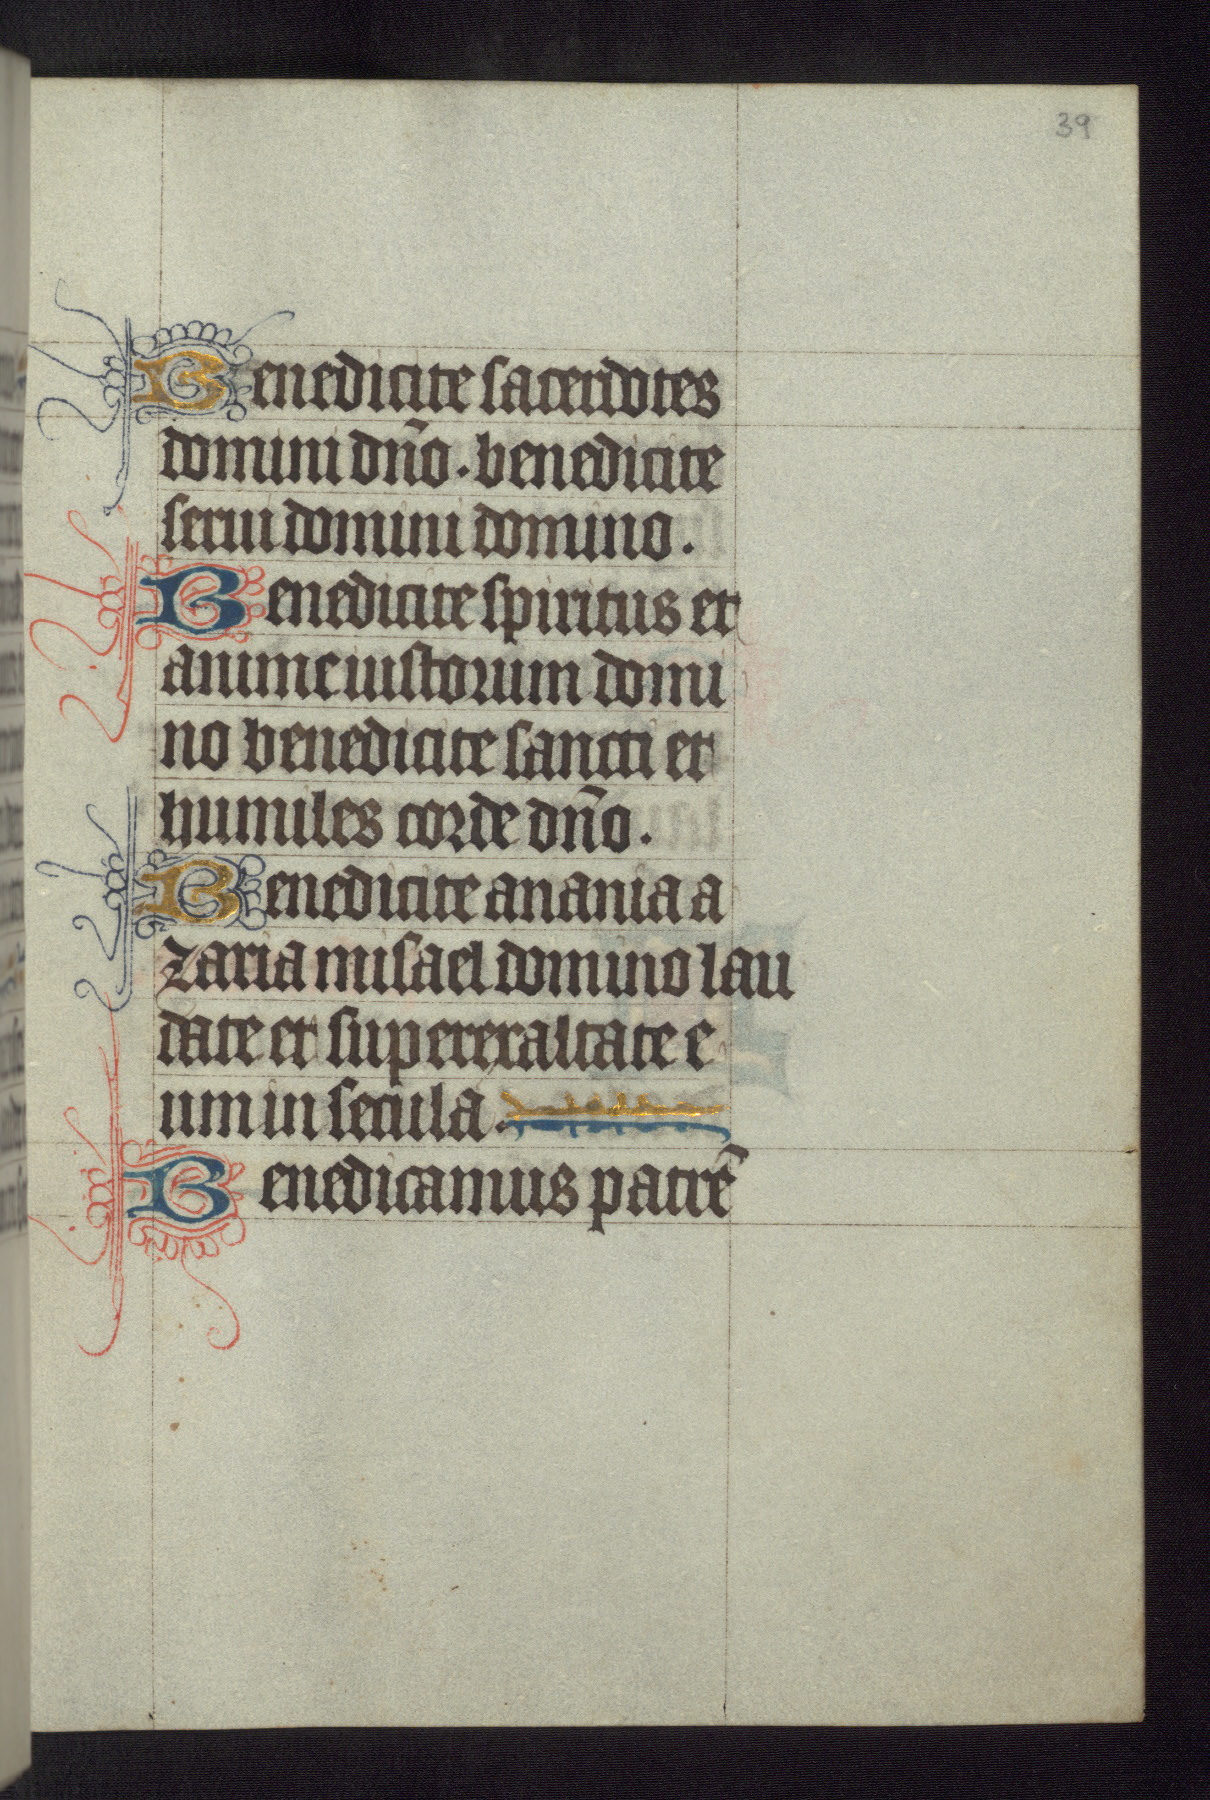 39
Benedicite sacerdotes
domini dño. benedicite
serui domini domino.
Benedicite spiritus et
anime iustorum domi
no benedicite sancti et
humiles corde dño.
Benedicite anania a
zaria misael domino lau
date et superexaltate e
um in secula.
Benedicamus patrē